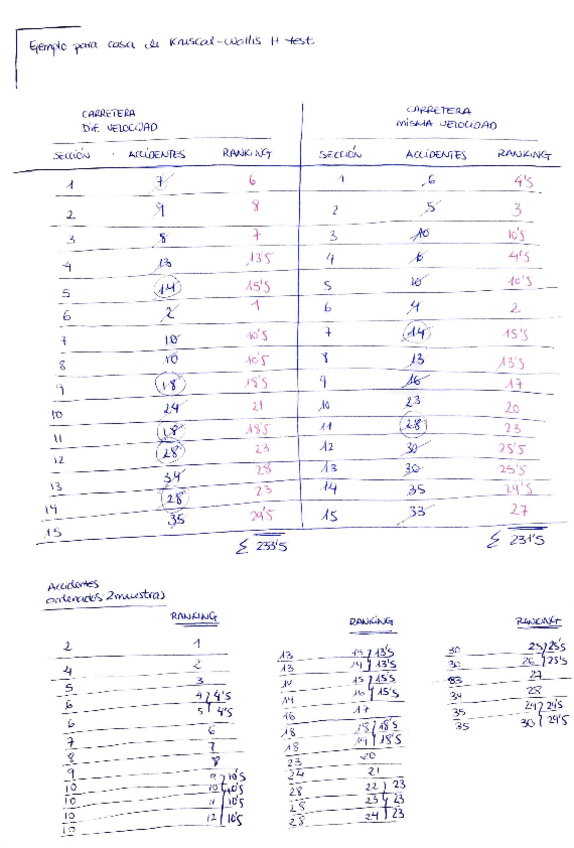 Ejemplo para casa de Kruscal-Wallis H test.
CARRETERA DIF. VELOCIDAD
CARRETERA MISMA VELOCIDAD
SECCIÓN ACCIDENTES RANKING SECCIÓN ACCIDENTES RANKING
1 7 6 1 6 4'5
2 9 8 2 5 3
3 8 7 3 10 10'5
4 13 13'5 4 6 4'5
5 14 15'5 5 10 10'5
6 2 1 6 4 2
7 10 10'5 7 14 15'5
8 10 10'5 8 13 13'5
9 18 18'5 9 16 17
10 24 21 10 23 20
11 18 18'5 11 28 23
12 28 23 12 30 25'5
13 34 28 13 30 25'5
14 28 23 14 35 29'5
15 35 29'5 15 33 27
Σ 233'5 Σ 231'5
Accidentes
ordenados 2muestras
RANKING
2 1
4 2
5 3
6 4 4'5
6 5 4'5
7 6
8 7
9 8
10 9 10'5
10 10 10'5
10 11 10'5
10 12 10'5
RANKING
13 13 13'5
13 14 13'5
14 15 15'5
14 16 15'5
16 17
18 18 18'5
18 19 18'5
23 20
24 21
28 22 23
28 23 23
28 24 23
RANKING
30 25 25'5
30 26 25'5
33 27
34 28
35 29 29'5
35 30 29'5